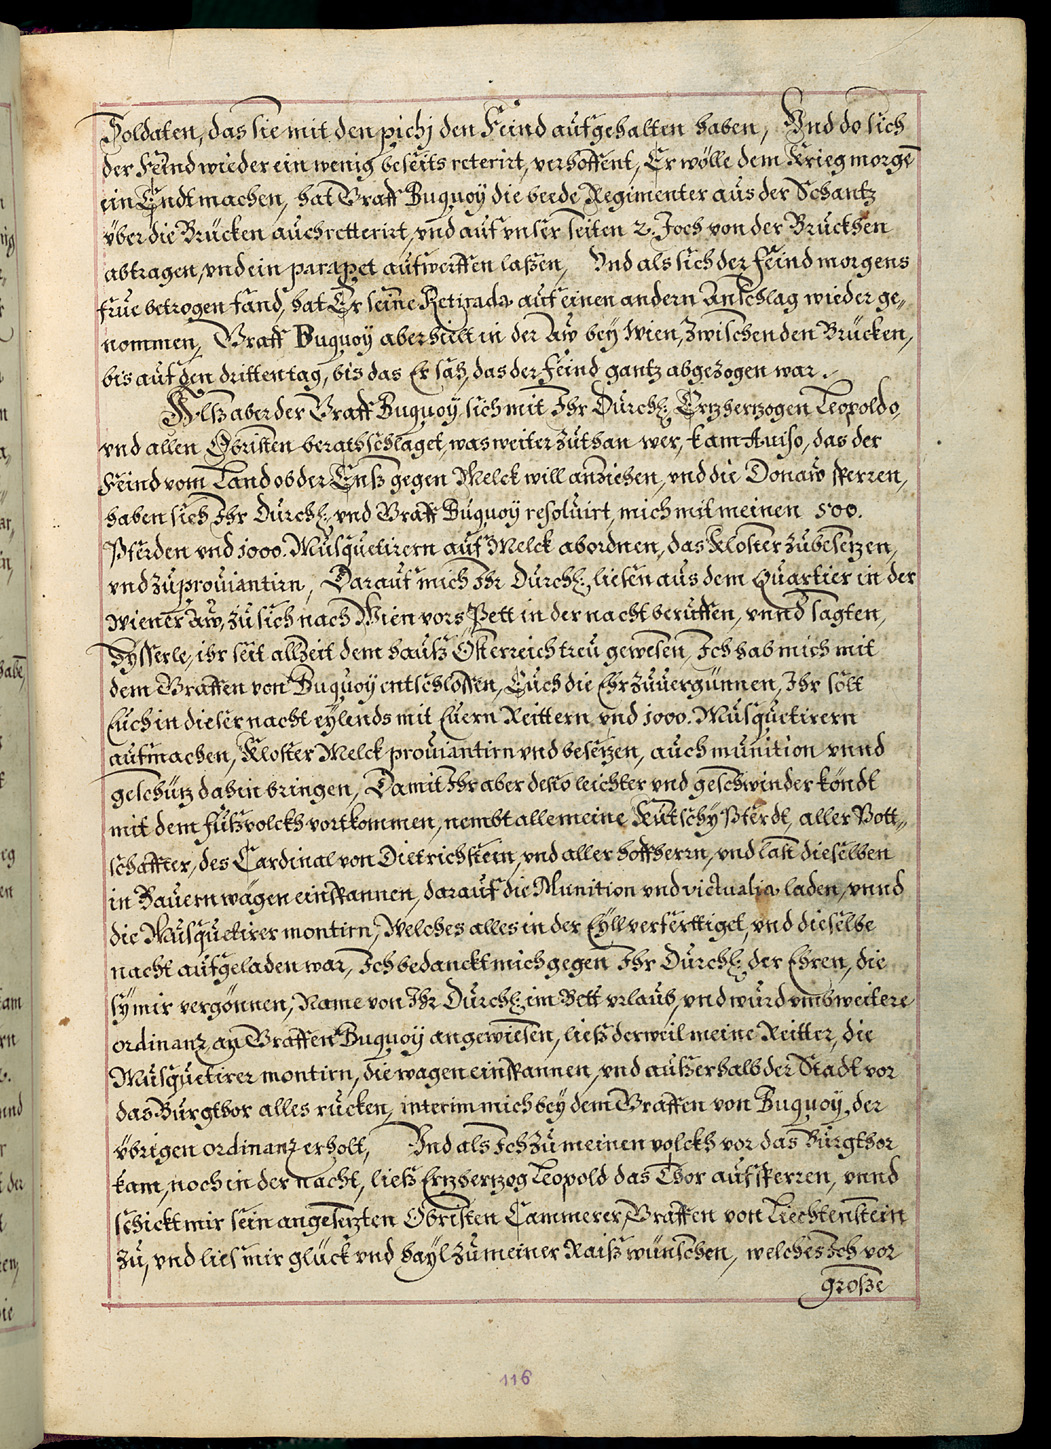 Soldaten, das sie mit den pichj den Feind aufgehalten haben, Vnd do sich
der Feind wieder ein wenig beseits reterirt, verhoffent, Er wölle dem Krieg morgē
ein Endt machen, hat Graff Buquoÿ die beede Regimenter aus der Schantz
vber die Brucken auch retterirt, vnd auf vnser seiten 2. Joch von der Bruckhen
abtragen, vnd ein parapet aufwerffen laßen, Vnd als sich der Feind morgens
frue betrogen fand, hat Er seine Retirada auf einen andern Anschlag wieder ge„
nommen, Graff Buquoÿ aber hielt in der Aw beÿ Wien, zwischen den Brucken,
bis auf den dritten tag, bis das Er sah, das der Feind gantz abgezogen war.
Alß aber der Graff Buquoÿ, sich mit Ihr Durchl: Ertzhertzogen Leopoldo,
vnd allen Obristen berathschlaget, was weiter zuthan wer, kam Auiso, das der
Feind vom Land ob der Enß gegen Melck will anziehen, vnd die Donaw sperren,
haben sich Ihr Durchl: vnd Graff Buquoÿ resoluirt, mich mit meinen 500.
Pferden vnd 1000. Musquetirern auf Melck abordnen, das Kloster zubesetzen,
vnd zuprouiantirn, Darauf mich Ihr Durchl: liesen aus dem Quartier in der
Wiener Aw, zu sich nach Wien vors Pett in der nacht beruffen, vnnd sagten,
Hysserle, ihr seit allzeit dem hauß Österreich treu gewesen, Ich hab mich mit
dem Graffen von Buquoÿ entschloßen, Euch die Ehr zuuergünnen, Ihr solt
Euch in dieser nacht eÿlends mit Euern Reittern vnd 1000. Musquetirern
aufmachen, Kloster Melck prouiantirn vnd besetzen, auch munition vnnd
geschütz dahin bringen, Damit Ihr aber desto leichter vnd geschwinder köndt
mit dem fußvolckh vortkommen, nembt alle meine Kutschÿ Pferdt, aller Pott„
schaffter, des Cardinal von Dietrichstein, vnd aller hoffherrn, vnd last dieselben
in Bauern wägen einspannen, darauf die Munition vnd victualia laden, vnnd
die Musquetirer montirn, Welches alles in der Eÿll verferttiget, vnd dieselbe
nacht aufgeladen war, Ich bedanckt mich gegen Ihr Durchl: der Ehren, die
sÿ mir vergönnen, Name von Ihr Durchl: im Bett vrlaub, vnd wurd vmb weitere
ordinanz an Graffen Buquoÿ angewiesen, ließ derweil meine Reitter, die
Musquetirer montirn, die wagen einspannen, vnd außerhalb der Stadt vor
das Burgthor alles rucken, interim mich beÿ dem Graffen von Buquoÿ, der
vbrigen ordinanz erholt, Vnd als Ich zu meinen volckh vor das Burgthor
kam, noch in der nacht, ließ Ertzhertzog Leopold das Thor aufsperren, vnnd
schickt mir sein angesetzten Obristen Cammerer, Graffen von Liechtenstein
zu, vnd lies mir glück vnd haÿl zu meiner Raiß wünschen, welches Ich vor
große
116